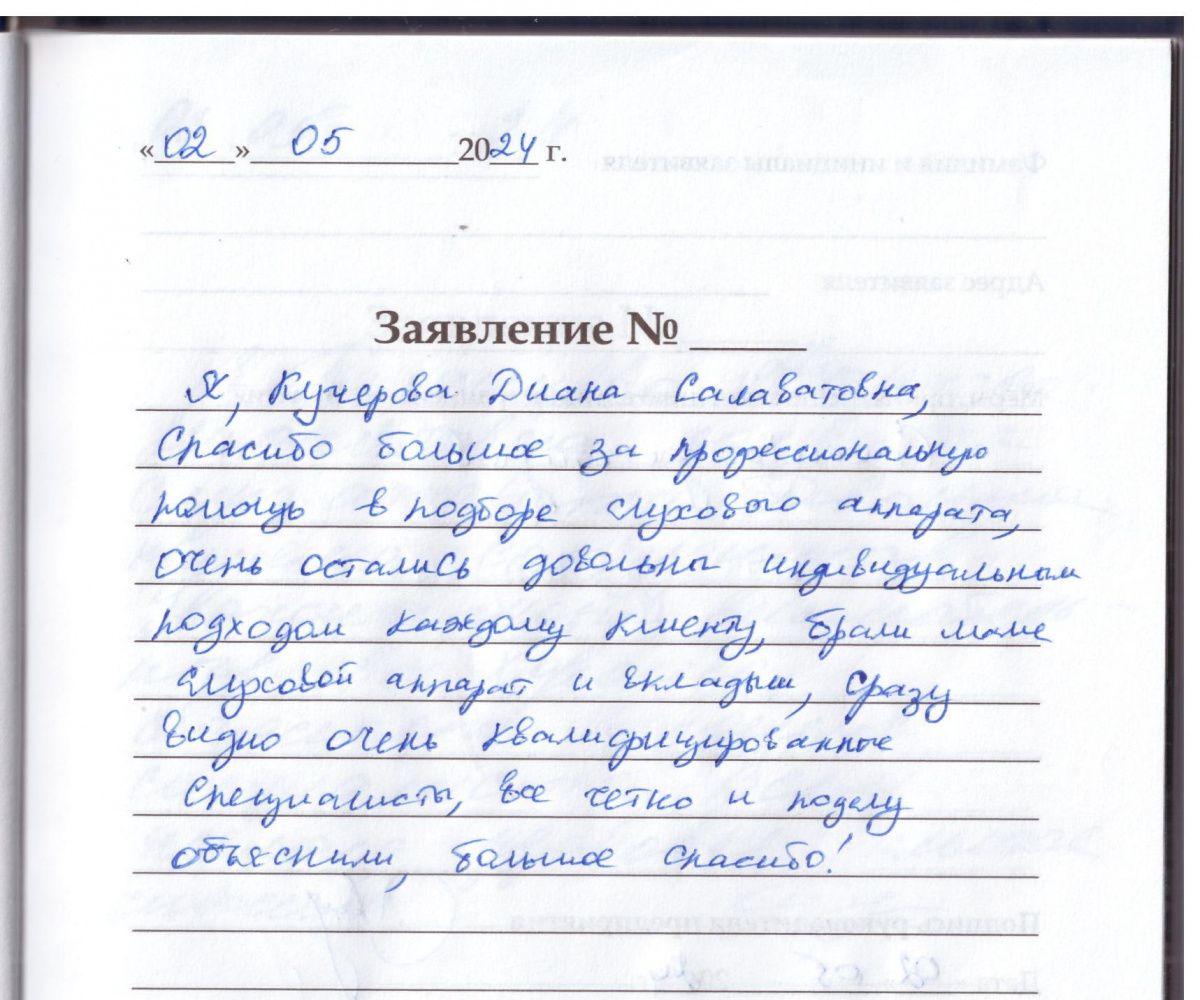 «02» 05 2024 г.
Заявление №
Я, Кучерова Диана Салаватовна,
Спасибо большое за профессиональную
помощь в подборе слухового аппарата,
очень остались довольны индивидуальным
подходом каждому клиенту, брали маме
слуховой аппарат и вкладыш, сразу
видно очень квалифицированные
специалисты, все четко и поделу
объяснили, большое спасибо!